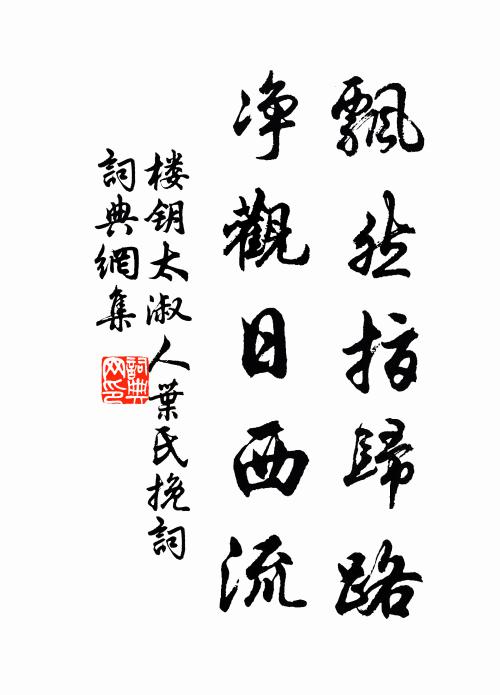 飄然指歸路
净觀日西流
楼钥太淑人葉氏挽詞
詞典網集
詞典網印